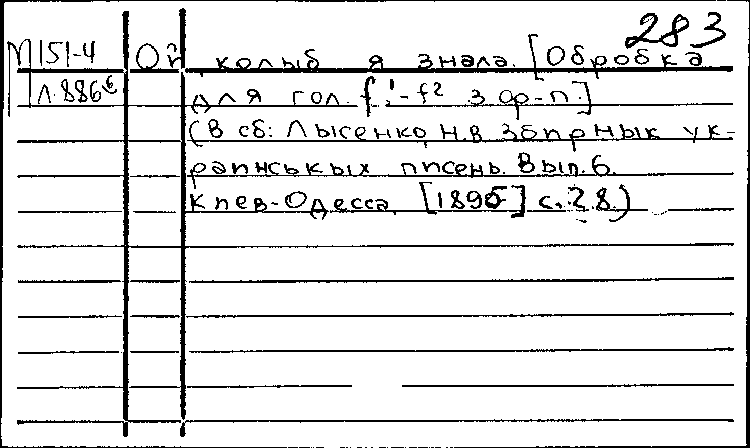 283
М151-4 Ой, колыб я знала. [Обробка
Л.886б для гол. f¹-f² з ф-п.]
(В сб: Лысенко, Н.В. Збірнык ук-
раінськых пісень. Вып. 6.
Киев-Одесса, [1895] с. 28.)